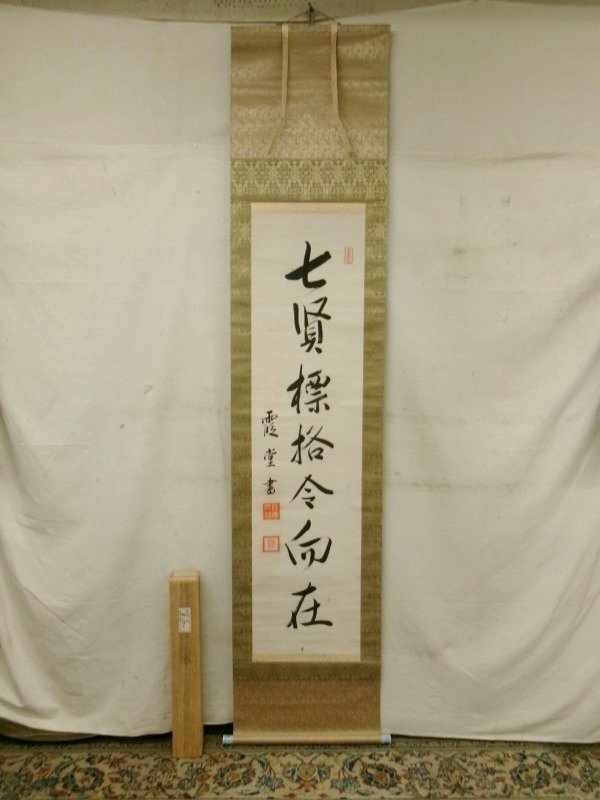 七賢標格今尚在
霞堂書